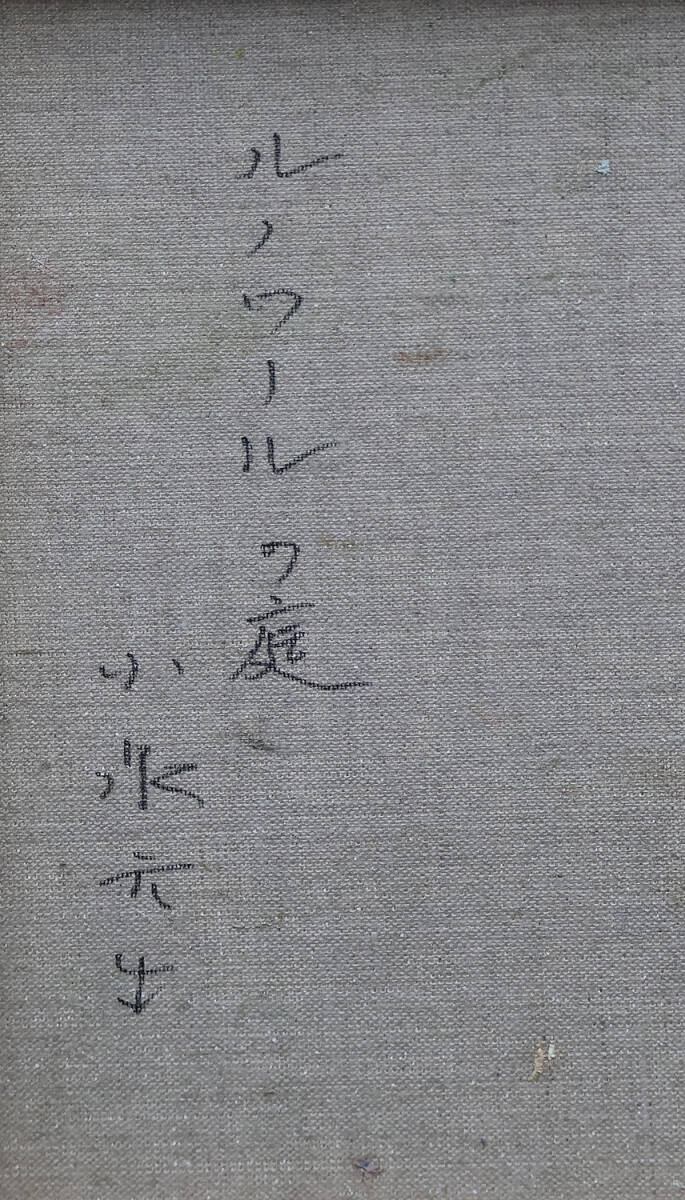 ルノワールの庭
小泉元生